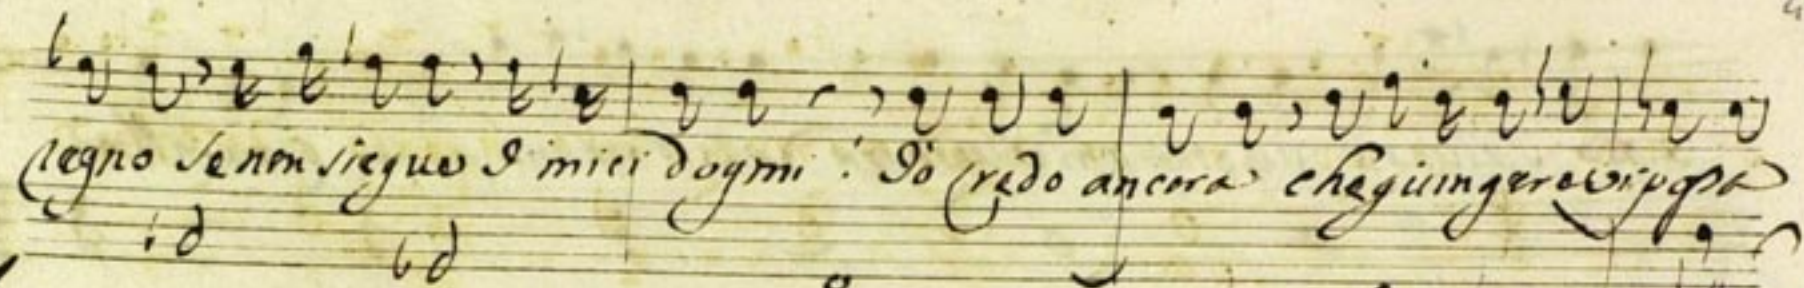 regno se non siegue i miei dogmi: Io credo ancora che giungere vi possa